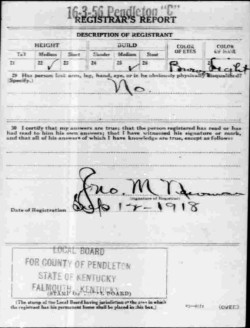 16-3-56 Pendleton "C"
REGISTRAR'S REPORT
DESCRIPTION OF REGISTRANT
HEIGHT BUILD COLOR OF EYES COLOR OF HAIR
Tall Medium Short Slender Medium Stout
21 22 ✓ 23 24 25 ✓ 26 27 28
29 Has person lost arm, leg, hand, eye, or is he obviously physically disqualified?
(Specify.)
No.
30 I certify that my answers are true; that the person registered has read or has
had read to him his own answers; that I have witnessed his signature or mark,
and that all of his answers of which I have knowledge are true, except as follows:
Jno. M
(Signature of Registrar)
Date of Registration Sep 12-1918
LOCAL BOARD
FOR COUNTY OF PENDLETON
STATE OF KENTUCKY
FALMOUTH, KENTUCKY
(STAMP OF LOCAL BOARD)
(The stamp of the Local Board having jurisdiction of the area in which
the registrant has his permanent home shall be placed in this box.)
(OVER)